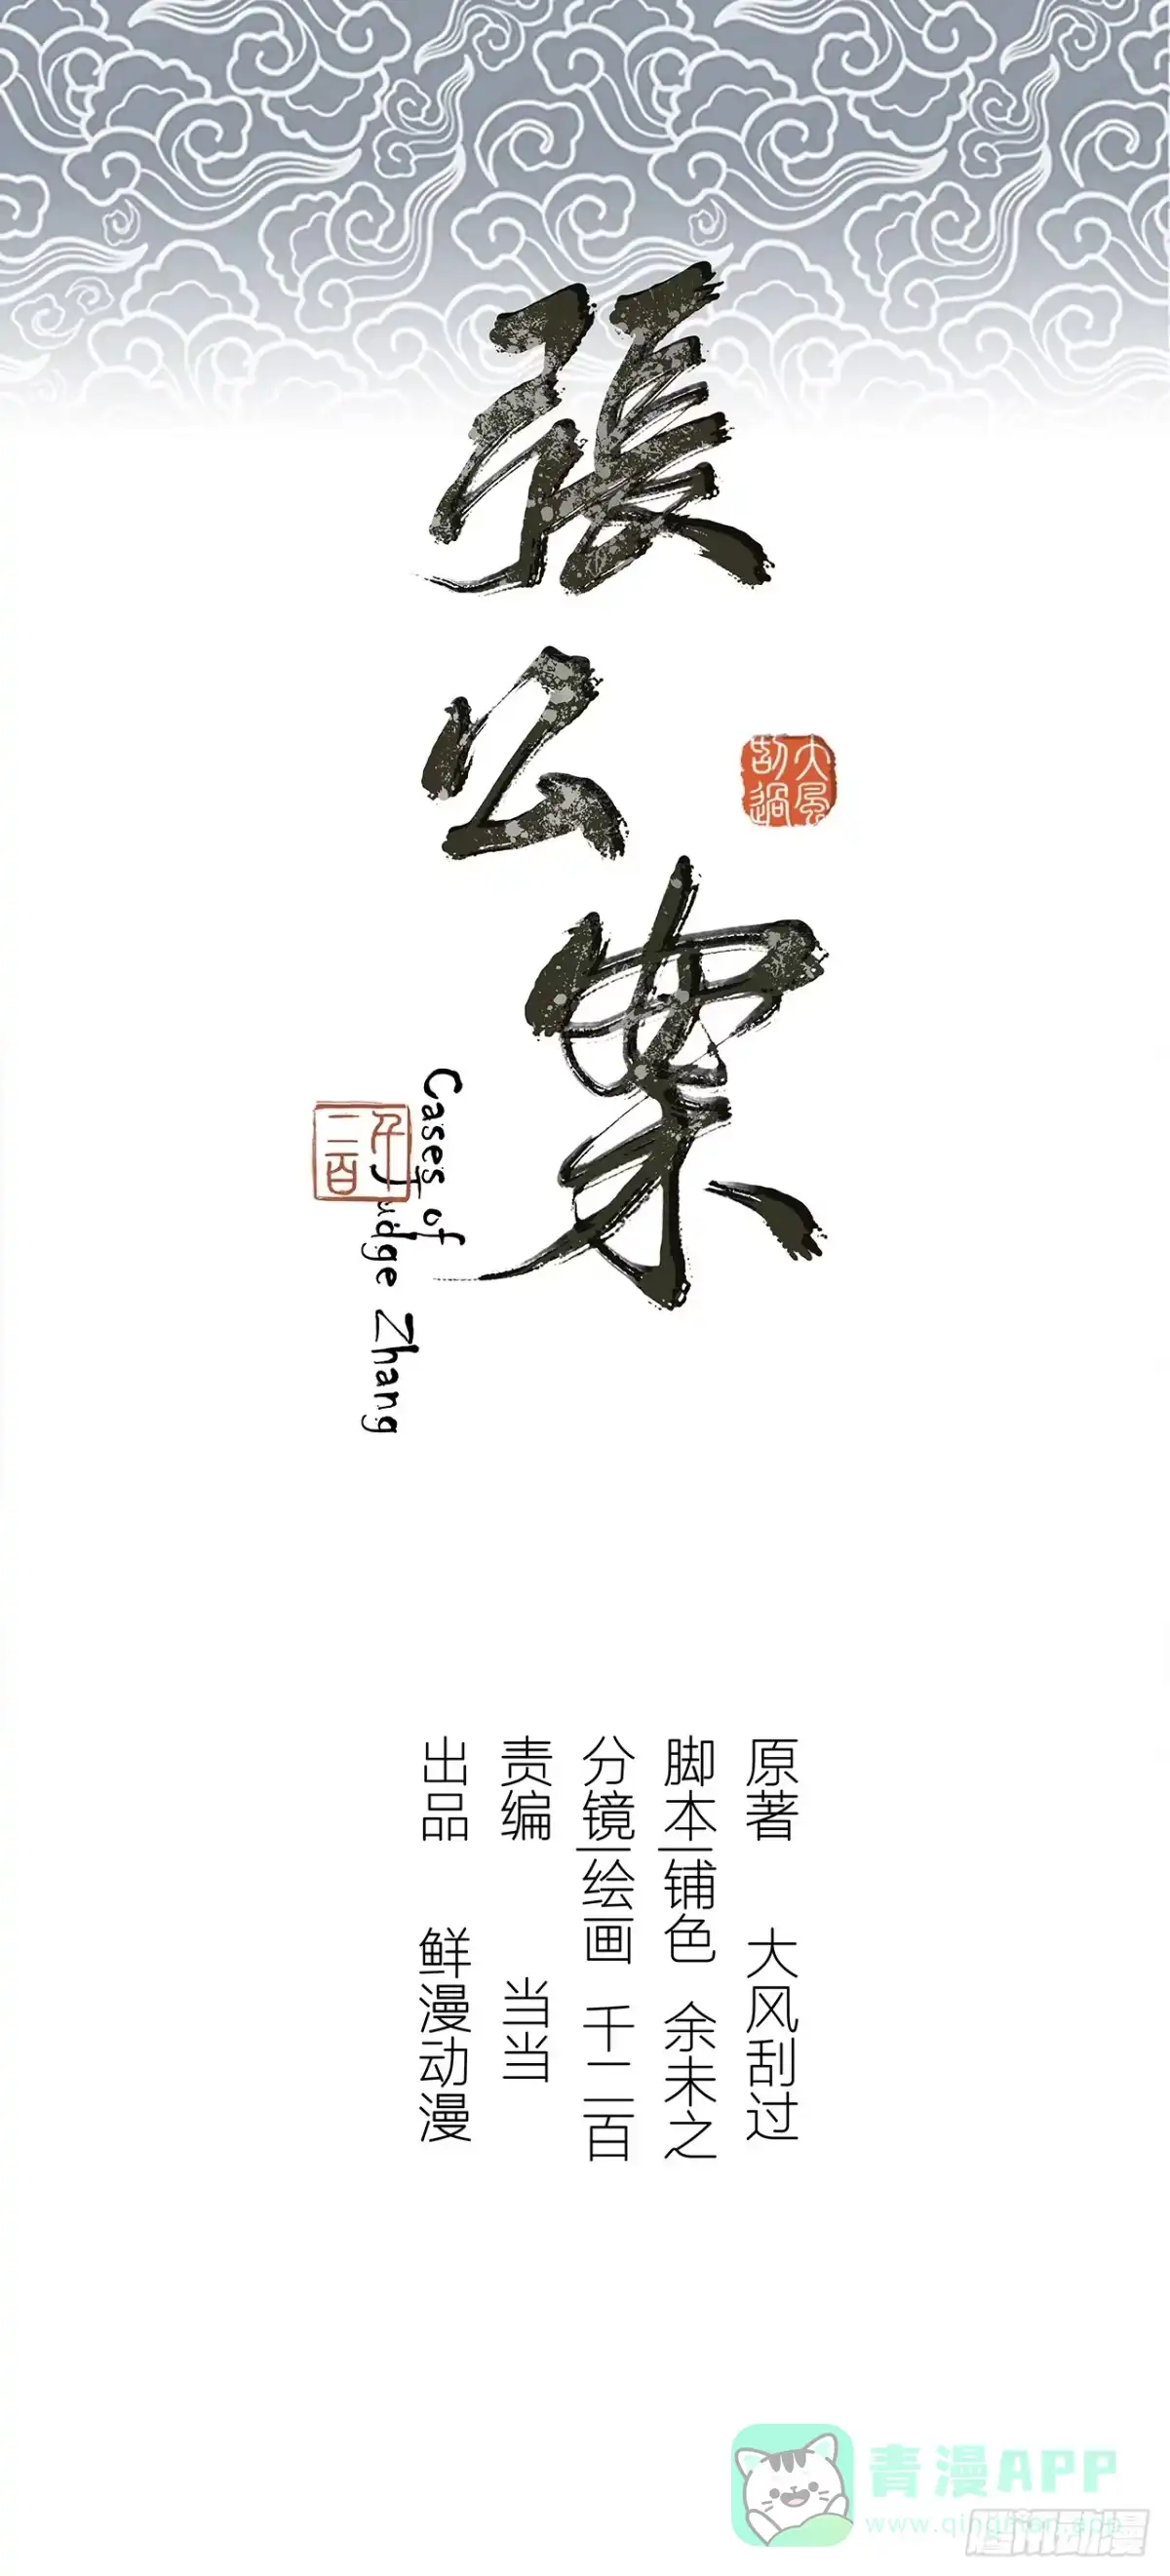 張公案
大風
刮過
Cases of
Judge Zhang
千
二百
原著 大风刮过
脚本|铺色 余未之
分镜|绘画 千二百
责编 当当
出品 鲜漫动漫
青漫APP
www.qingman.app
腾讯动漫